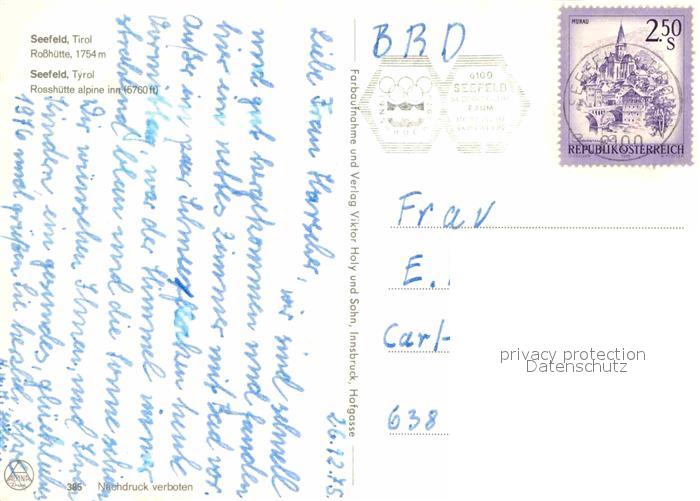 Seefeld, Tirol
Roßhütte, 1754 m
Seefeld, Tyrol
Rosshütte alpine inn (5760 ft)
26.12.75
Liebe Frau
wir sind schnell
und gut heraufkommen und fanden
hier ein nettes Zimmer mit Bad vor.
Außer ein paar Schneeflocken heute
war der Himmel immer
strahlend blau und die Sonne schien.
Wir wünschen Ihnen und Ihren
Kindern ein gesundes, glückliches
1976 und grüßen Sie herzlich Ihre
385 Nachdruck verboten
ALPINA
Farbaufnahme und Verlag Viktor Holy und Sohn, Innsbruck, Hofgasse
BRD
6100
SEEFELD
MURAU
2.50
S
REPUBLIK ÖSTERREICH
6100
Frau
E.
Carl-
638
privacy protection
Datenschutz